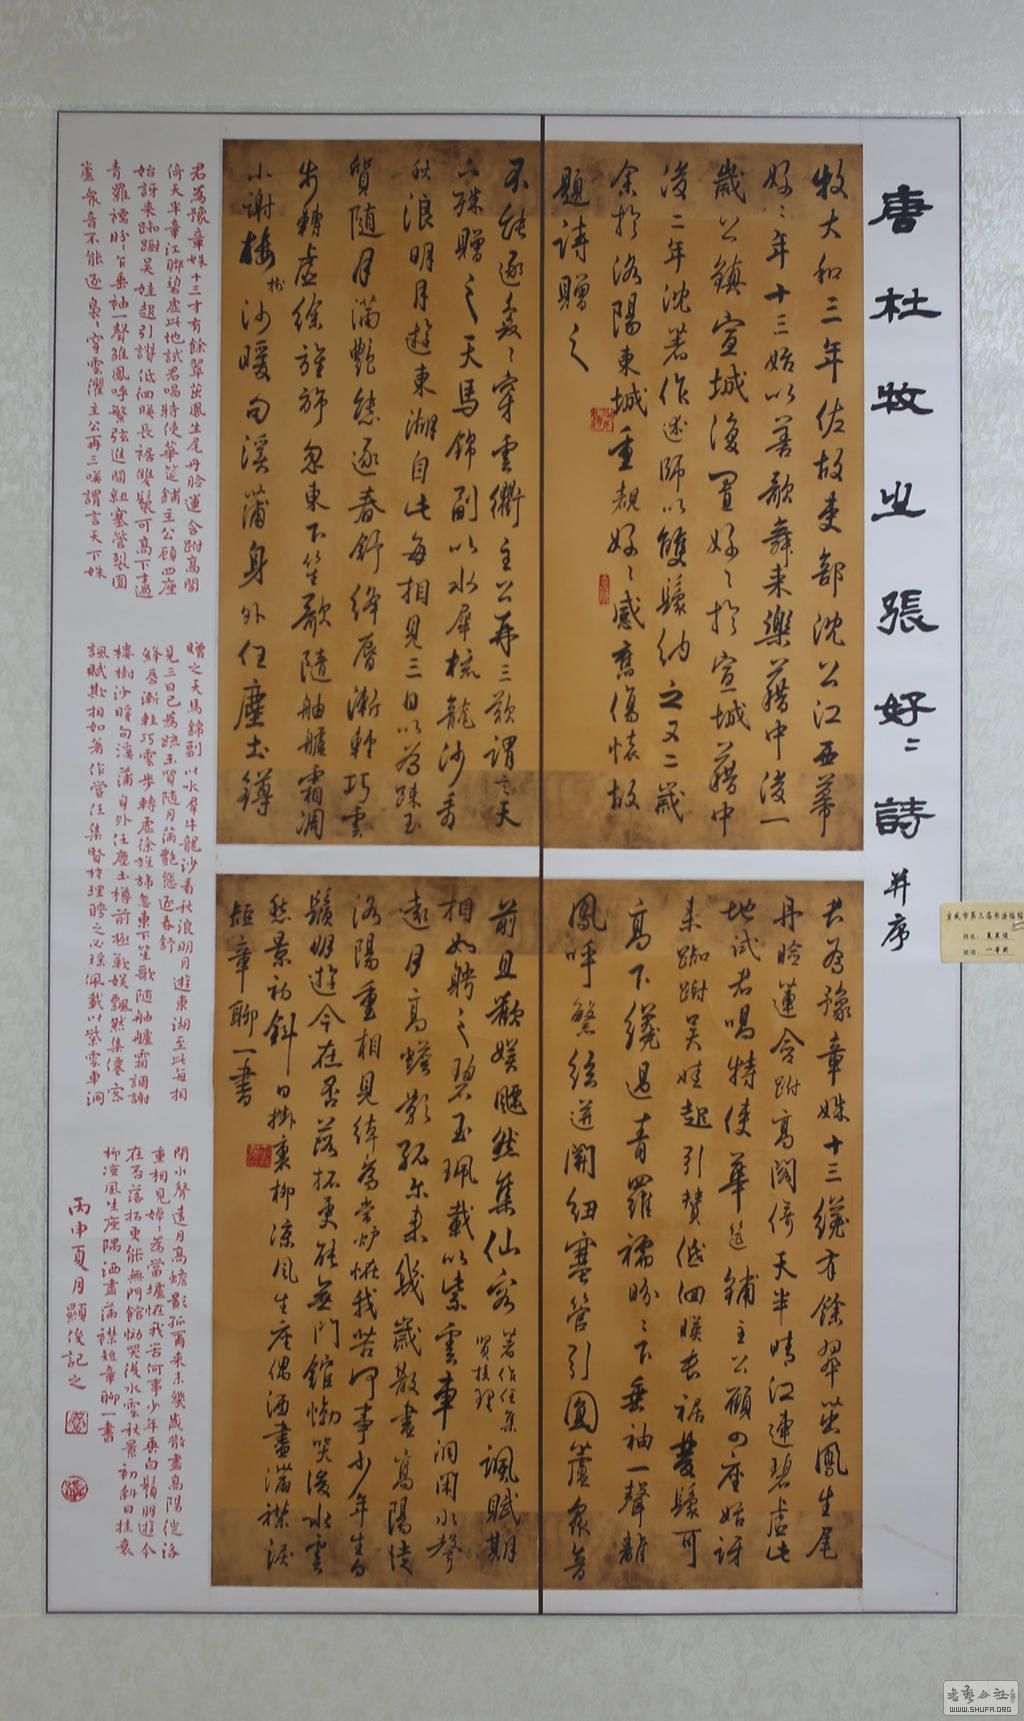 唐杜牧之張好〻詩并序
牧大和三年佐故吏部沈公江西幕
好〻年十三始以善歌舞来樂藉中後一
歲公鎮宣城復置好〻於宣城藉中
後二年沈著作述師以雙鬟納之又二歲
余於洛陽東城重覩好〻感舊傷懷故
題詩贈之
不能逐袅〻穿雲衢主公再三歎謂言天
下姝贈之天馬錦副以水犀梳龍沙看
秋浪明月遊東湖自此每相見三日以為踈玉
質随月滿艷態逐春舒絳唇漸輕巧雲
步轉虛徐旌旆忽東下笙歌隨舳艫霜凋
小謝樓樹沙暖句溪蒲身外任塵土鐏
君為豫章姝十三纔有餘翠茁鳳生尾
丹臉蓮含跗高閣倚天半晴江連碧虛此
地試君唱特使華筵鋪主公顧四座始訝
来踟跗吴娃起引賛低佪暎長裾雙鬟可
高下纔過青羅襦盼〻下垂袖一聲離
鳳呼繁弦迸關紐塞管引圓蘆衆音
前且歡娱飄然集仙客著作任集賢校理諷賦期
相如聘之碧玉珮載以紫雲車洞閑水聲
遠月高蟾影孤尔来幾歲散盡高陽徒
洛陽重相見綽為當爐怪我苦何事少年生白
鬚朋遊今在否落拓更能無門館慟哭後水雲
愁景初斜日掛衰柳凉風生座偶洒盡滿襟淚
短章聊一書
君為豫章姝十三才有餘翠茁鳳生尾丹臉蓮含跗高閣
倚天半章江聯碧虛此地試君唱特使華筵鋪主公顧四座
始訝来踟躕吴娃起引讚低佪暎長裾雙鬟可高下才過
青羅襦盼〻乍垂袖一聲雛鳳呼繁弦迸關紐塞管裂圓
蘆衆音不能逐裊〻穿雲衢主公再三嘆謂言天下姝
贈之天馬錦副以水犀梳龍沙看秋浪明月遊東湖至此每相
見三日已為疏玉質随月滿艷態逐春舒
絳唇漸輕巧雲步轉虛徐旌旆忽東下笙歌随舳艫霜凋謝
樓樹沙暖句溪蒲身外任塵土樽前極歡娱飄然集僊客
諷賦欺相如著作嘗任集賢校理聘之必瑶佩載以紫雲車洞
閉水聲遠月高蟾影孤爾来未幾歲散盡高陽徒洛
重相見婥〻為當壚怪我苦何事少年垂白鬚朋遊今
在否落拓更能無門館慟哭後水雲秋景初斜日挂衰
柳凉風生座隅洒盡滿襟短章聊一書
丙申夏月顯俊記之
宣威市第三届书法临帖
姓名：
奖项：一等奖
书艺公社
WWW.SHUFA.ORG